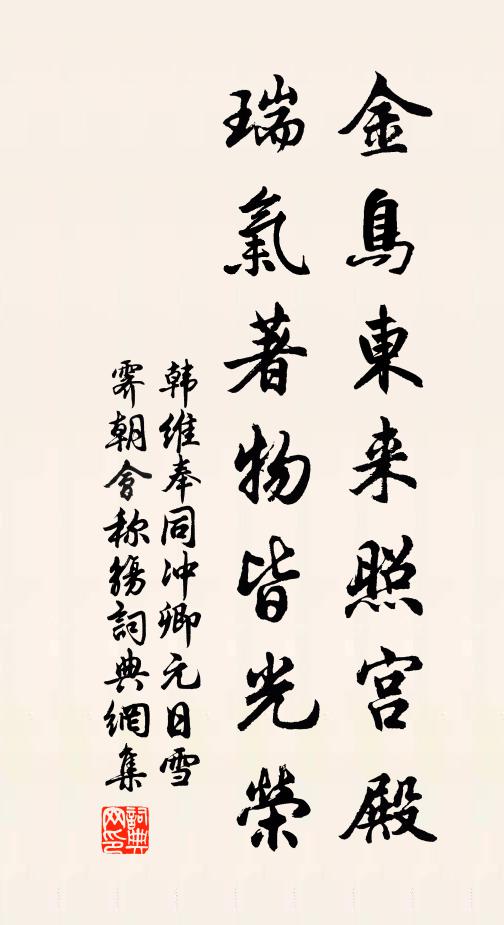 金烏東来照宫殿
瑞氣著物皆光榮
韩维奉同冲卿元日雪
霁朝會称觞詞典網集
詞典
网印